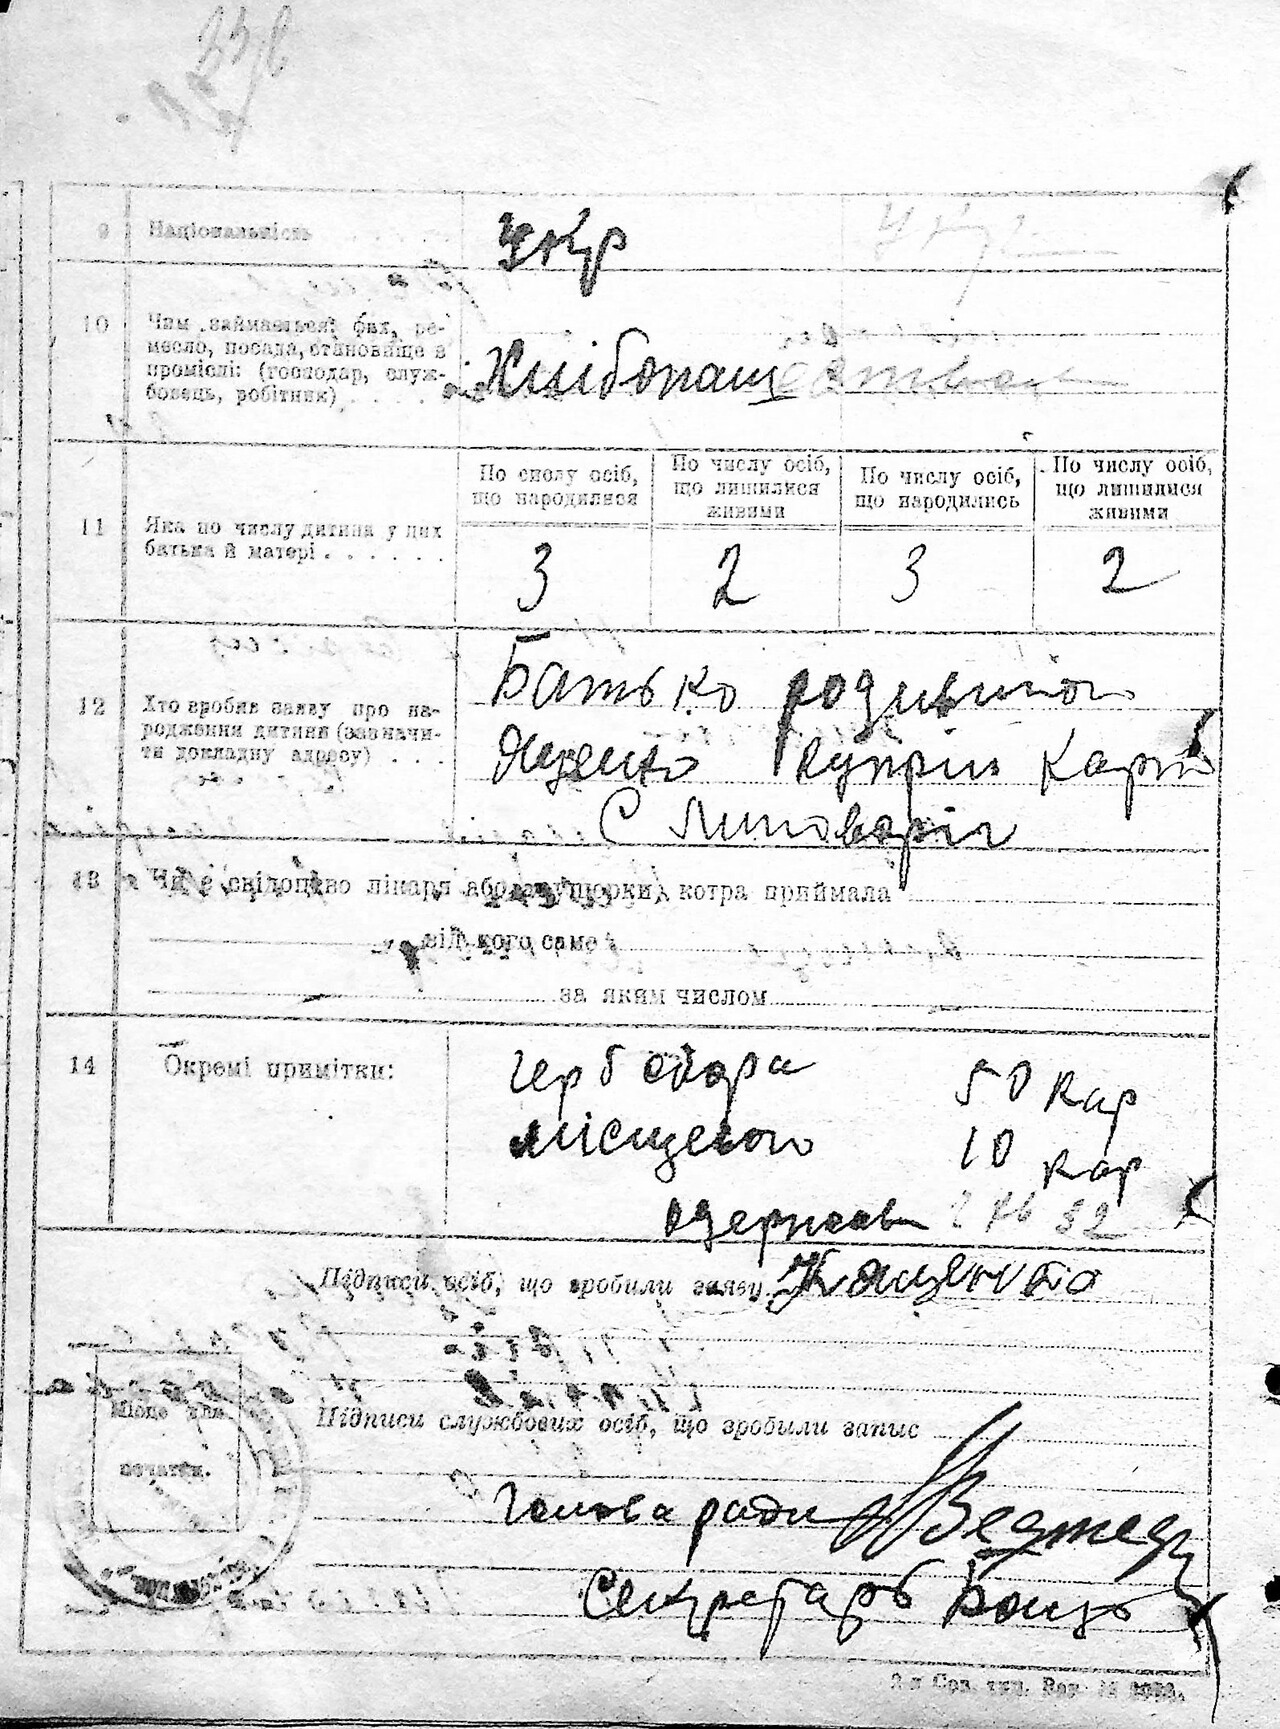 9 Національність . . . . Укр Укр
10 Чим займається: фах, ре-
месло, посада, становище в
промислі: (господар, служ-
бовець, робітник) . . . . Хлібопаш
По числу осіб, що народилися
По числу осіб, що лишилися живими
По числу осіб, що народились
По числу осіб, що лишилися живими
11 Яка по числу дитина у цих
батька й матері . . . . . .
3 2 3 2
12 Хто зробив заяву про на-
родження дитини (зазначи-
ти докладну адресу) . . .
Батько
Яценко Купріян Карп
С
13 Чи є свідоцтво лікаря або акушорки, котра приймала
від кого саме
за яким числом
14 Окремі примітки:
герб сбора 50 кар
місцевого 10 кар
одержав
Підписи осіб, що зробили заяву К Яценко
Підписи службових осіб, що зробыли запис
Місце для
печатки.
Голова ради Ведмедь
Секретарь
2-я Сов. тип.